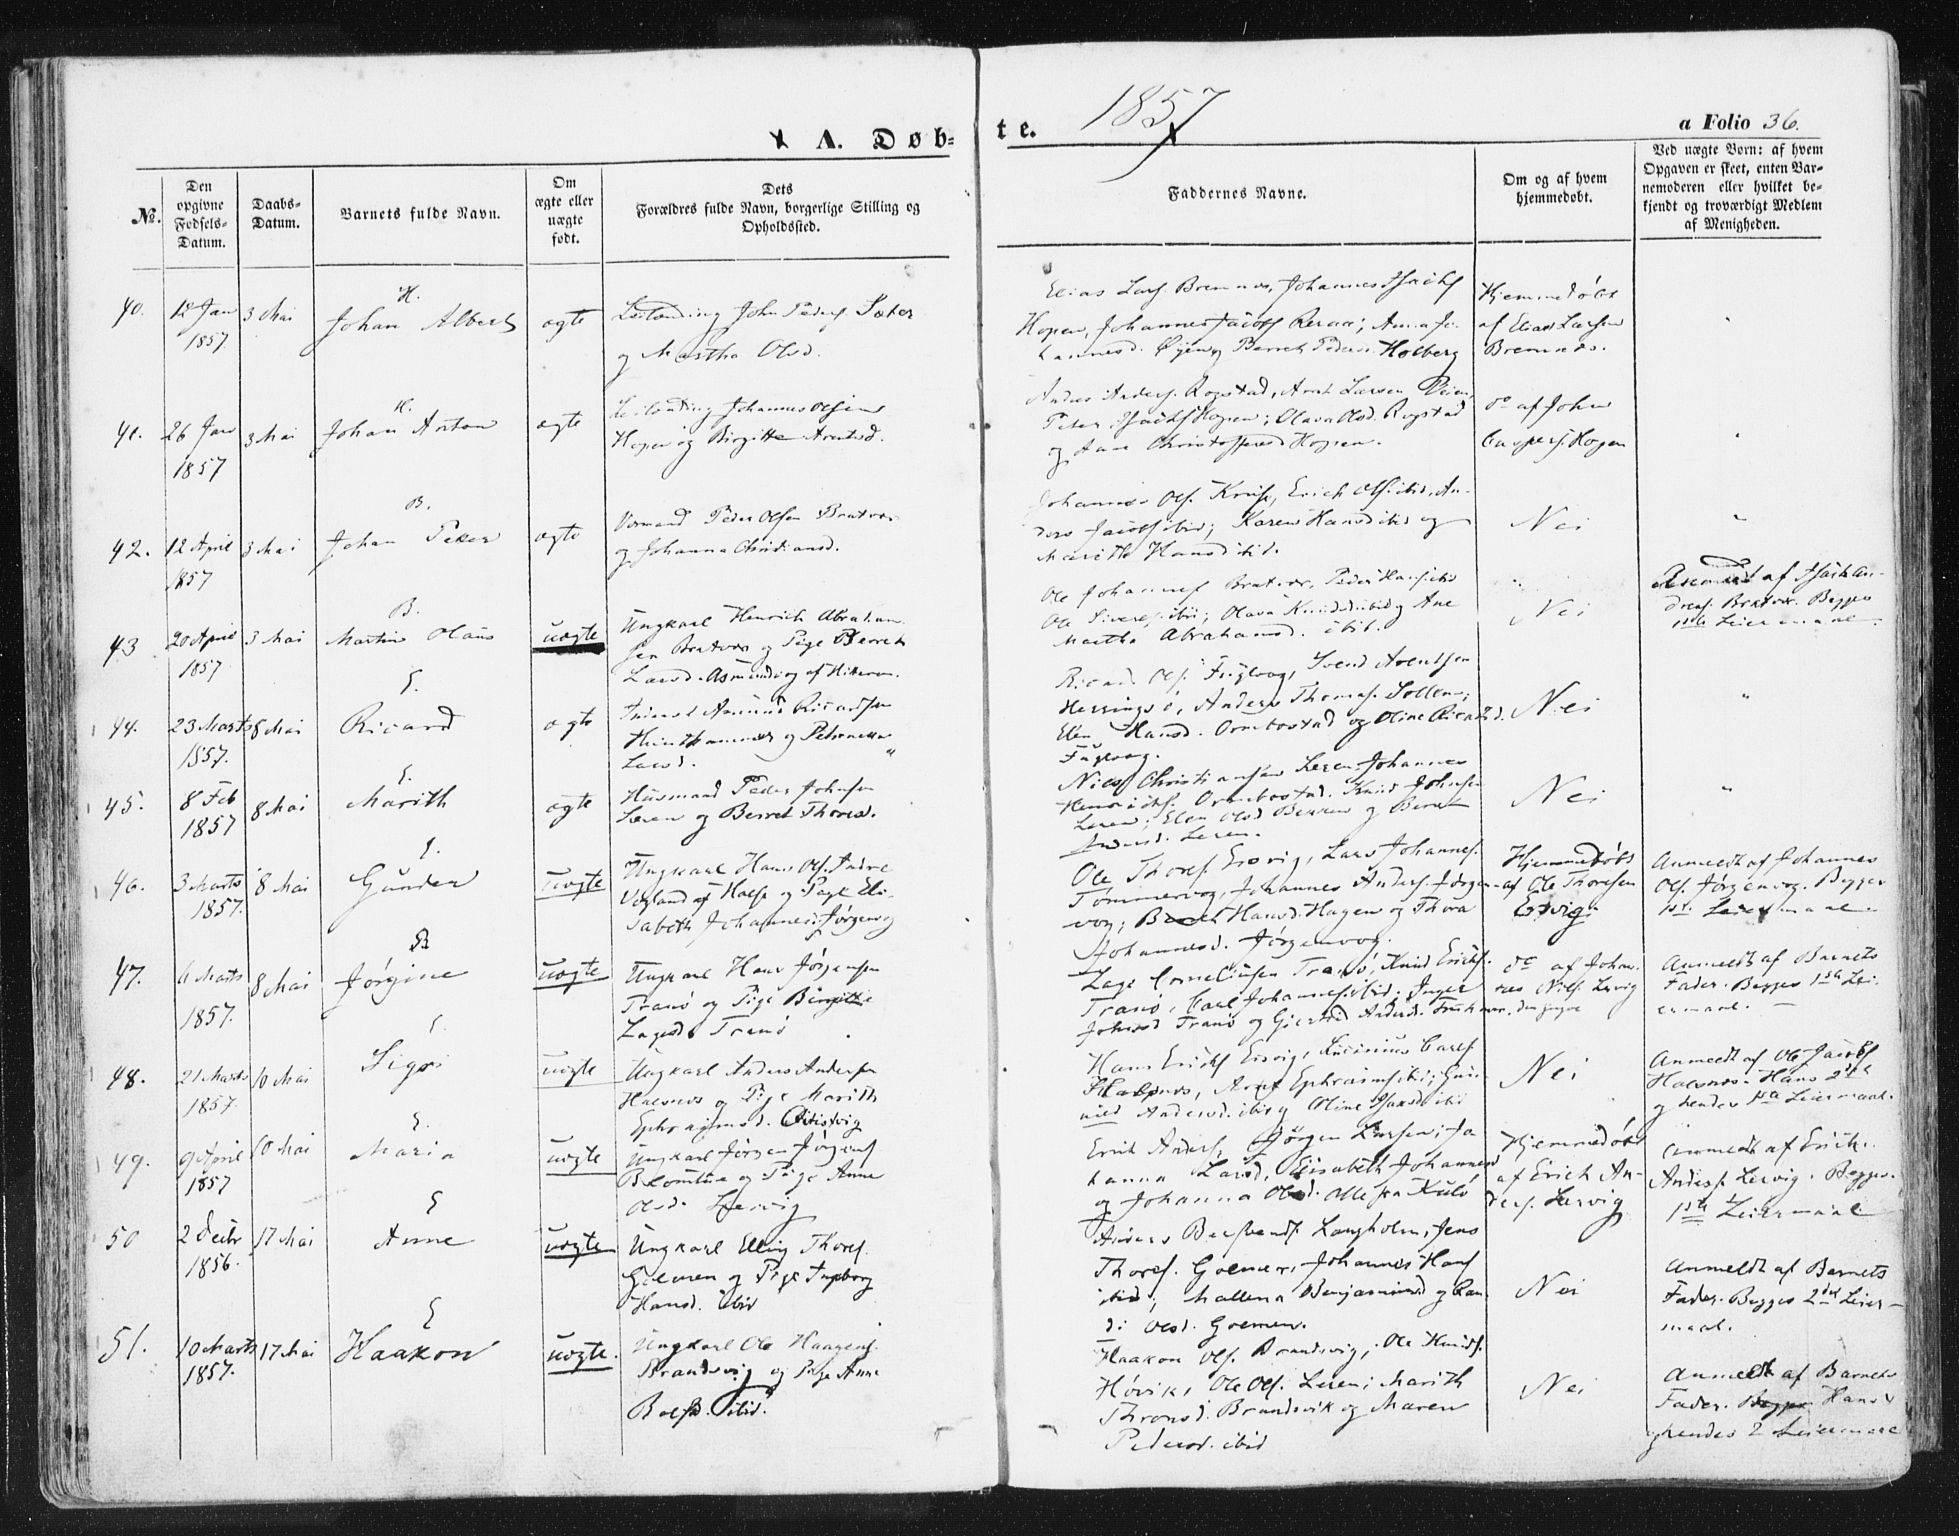 A. Døb-
te. 1857
a Folio 36.
No.
Den opgivne Fødsels-Datum.
Daabs-Datum.
Barnets fulde Navn.
Om ægte eller uægte født.
Dets
Forældres fulde Navn, borgerlige Stilling og Opholdssted.
Faddernes Navne.
Om og af hvem hjemmedøbt.
Ved uægte Børn: af hvem Opgaven er skeet, enten Barnemoderen eller hvilket bekjendt og troværdigt Medlem af Menigheden.
40. 12 Jan 1857 3 Mai
H.
Johan Albert ægte
John Peders. Sæter
og Martha Olsd.
Elias Lars. Bremnes, Johannes
Hopen, Johannes Jacobs.
Holberg
Hjemmedøbt
af Elias Larsen
Bremnes.
41. 26 Jan 1857 3 Mai
H.
Johan Anton ægte
Johannes Olsen
Hopen og Birgitte Arntsd.
Anders Anders. Rogstad, Arnt Larsen
Peter Hopen; Olava Olsd. Rogstad
og Hopen.
do af John
Caspers. Hopen
42. 12 April 1857 3 Mai
B.
Johan Peter ægte
Peder Olsen Bratvær
og Johanna Christiansd.
Johannes Ols. Erich Ols. ibid, An-
ders Jacobs ibid; Karen Hansd ibid og
Marith Hansd ibid.
Nei
43 20 April 1857 3 Mai
B.
Martin Olaus uægte
Ungkarl Henrich Abraham-
sen Bratvær og Pige Berret
Larsd. af Hitteren.
Ole Johannes Bratvær, Peder Hans. ibid
Ole Sivers. ibid; Olava Knudsd ibid og Ane
Martha Abrahamsd. ibid.
Nei
Anmeldt af Isach An-
dreas. Bratvær. Begges
1ste Leiermaal.
44. 23 Marts 1857. 8 Mai
E.
Ricard ægte
Ricardsen
og Petronella
Larsd.
Ricard Ols. Fuglvog, Svend Arentsen
Herringsø, Anders Thomas. Sollem;
Elen Hansd. Ormbostad og Oline Ricardsd.
Fuglvog.
Nei
45. 8 Feb 1857 8 Mai
E.
Marith ægte
Husmand Peder Johnsen
Leren og Berret Thoresd.
Niels Christiansen Leren, Johannes
Henrichs. Ormbostad. Knud Johnsen
Leren; Elen Olsd Bekken og Berret
Leren.
Nei
46. 3 Marts 1857. 8 Mai
E.
Gunder uægte
Ungkarl Hans Ols. Indre
Vogland af Halse og Pige Eli-
sabeth Johannesd. Jørgenvog
Ole Thores. Esvig, Lars Johannes.
Tømmervog, Johannes Anders. Jørgen-
vog; Hansd. Hagen og Thora
Johannesd. Jørgenvog.
Hjemmedøbt
af Ole Thoresen
Esvig.
Anmeldt af Johannes
Ols. Jørgenvog. Begges
1ste Leiermaal.
47. 6 Marts 1857. 8 Mai
B
Jørgine uægte
Ungkarl Hans Jørgensen
Tranø og Pige Birgitte
Lagesd. Tranø
Lage Corneliusen Tranø, Knud Erichs.
Tranø, Carl Johannes. ibid. Inger
Johnsd Tranø og Gjertrud Andersd.
do af Johan-
nes Niels. Lervig
Anmeldt af Barnets
Fader. Begges 1ste Lei-
ermaal.
48. 21 Marts 1857. 10 Mai
E.
Sigri uægte
Ungkarl Anders Andersen
Halsnes og Pige Marith
Ephraimsd.
Hans Erichs Esvig, Carls
Halsnes, Ephraims ibid;
Andersd. ibid og Oline Isaksd ibid
Nei
Anmeldt af Ole Jacobs
Halsnes. Hans 2det
og hendes 1ste Leiermaal.
49. 9 April 1857 10 Mai
E.
Maria uægte
Ungkarl Jørgen Jørgens.
og Pige Anne
Olsd. Lervig
Erich Anders, Jørgen Larsen; Jo-
hanna Larsd, Elisabeth Johannesd
og Johanna Olsd. Alle fra Kulø
Hjemmedøbt
af Erich An-
ders. Lervig
Anmeldt af Erich
Anders. Lervig. Begges
1ste Leiermaal
50 2 Decbr 1856. 17 Mai
E
Anne uægte
Ungkarl Elling Thores.
Golmen og Pige Ingeborg
Hansd. ibid
Anders Langholm, Jens
Thores. Golmen, Johannes Hans
ibid; Mallena Benjaminsd og Ran-
di Olsd. Golmen.
Nei
Anmeldt af Barnets
Fader. Begges 2det Leier-
maal.
51. 10 Marts 1857. 17 Mai
E
Haakon uægte.
Ungkarl Ole Haagens.
Brandsvig og Pige Anne
ibid.
Haakon Ols. Brandsvig, Ole Knuds.
Høvik, Ole Ols. Leren; Marith
Thronsd. Brandsvik og Maren
Pedersd. ibid
Nei
Anmeldt af Barnets
Fader. Hans
og hendes 2 Leiermaal